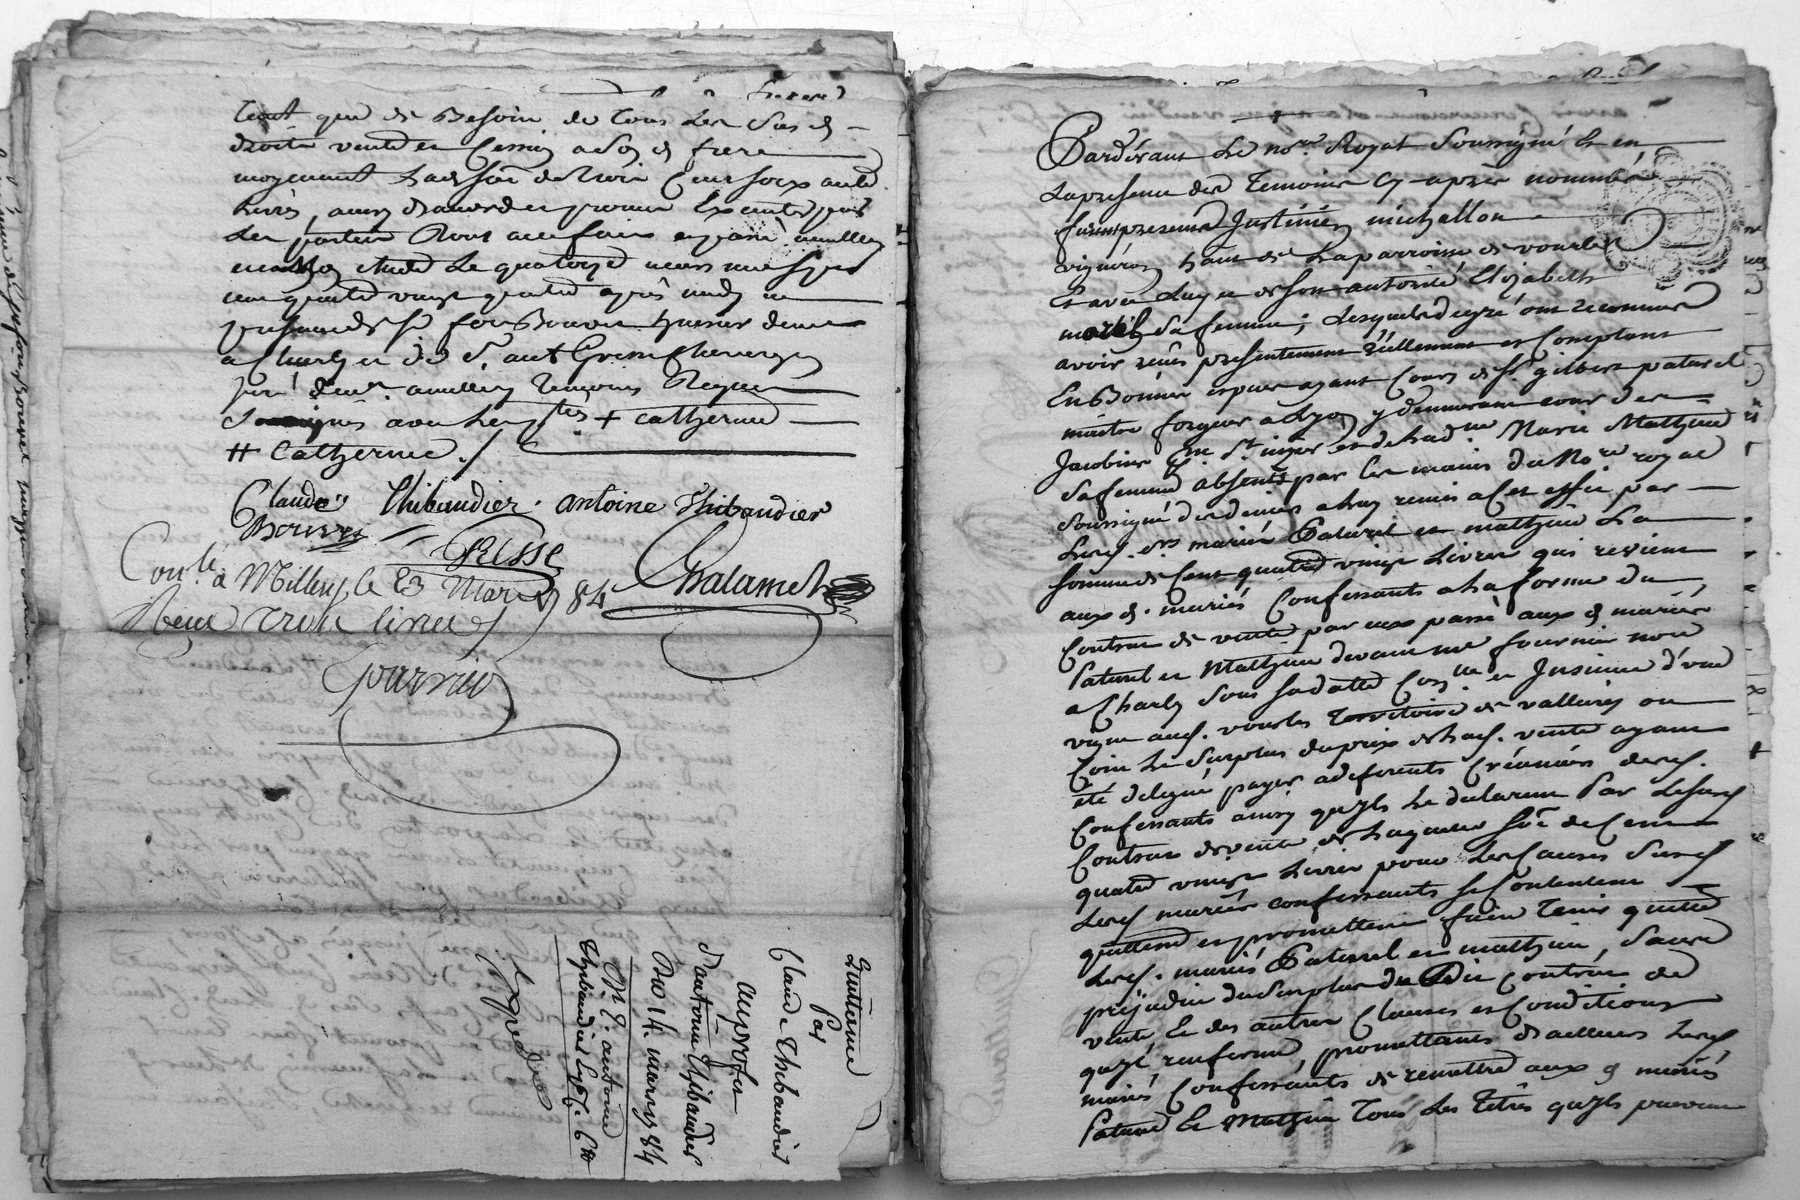 tant que de Besoin de tous les sus d.
droits vendu et Cessioñ a Son d. frere
moyenant lad. som̃e de trois Cent soixante
livres, ainsy d'accord et promis Executer par
les parties Dont acte fait et passé a millery
en Etude le quatorze mars mil sept
cent quatre vingt quatre après midy en
presence de Sr
a Charly et de Sr
juré dem.t a millery temoins Requis
Soussignés avec les pties + catherine
# catherine ./.
Claude Thibaudier . antoine Thibaudier
Bouvret
Presse
Chalamel
Con.lé a Millery le 23 Mars 84
Reçu trois livres
Gournier
Quittance
Par
Claude Thibaudier
au profit
d'antoine Thibaudier
Du 14. mars 84
M. E. antoine
Thibaudier
Expediée
Pardevant Le no.re Royal Soussigné Et en
La presence des Temoins cy-après nommés
furent presents Justinien michallon
vigneron hant de la parroisse de vourles
Et avec luy et de son autorité Elizabeth
sa femme; Lesquels de gré ont reconnu
avoir reçus presentement réellement et Comptant
En Bonnes especes ayant Cours de Sr. gilbert paturel
maitre forgeur a Lyon y demeurant cour des
Jacobins St. nizier et de lad.me Marie Mathieu
Sa femme absents par les mains du No.re royal
Soussigné des deniers a luy remis a Cet effet par
Lesd. mariés Paturel et mathieu La
Somme de Cent quatre vingt Livres qui revient
aux d. mariés Confessants a la forme du
Contrat de vente par eux passé aux d. mariés
Paturel et Mathieu devant me fournier no.re
a Charly Sous sa datte d'une
vigne aud. vourles Territoire de vallieres ou
Coin Le Surplus du prix de lad. vente ayant
été delegué payer a diferents Créanciers desd.
Confessants ainsy qu'ils Le declarent Par Le susd.
Contrat de vente de laquelle som̃e de Cent
quatre vingt Livres pour Les Causes Susd.
Lesd. mariés confessants se Contentent
quittent et promettent faire tenir quitte
Lesd. mariés Paturel et mathieu, Sans
prejudice du Surplus du Dit Contrat de
vente Et des autres Clauses et Conditions
qu'il renferme, promettants d'ailleurs Lesd.
mariés Confessants de remettre aux d. mariés
Paturel Et Mathieu Tous Les Titres qu'ils peuvent